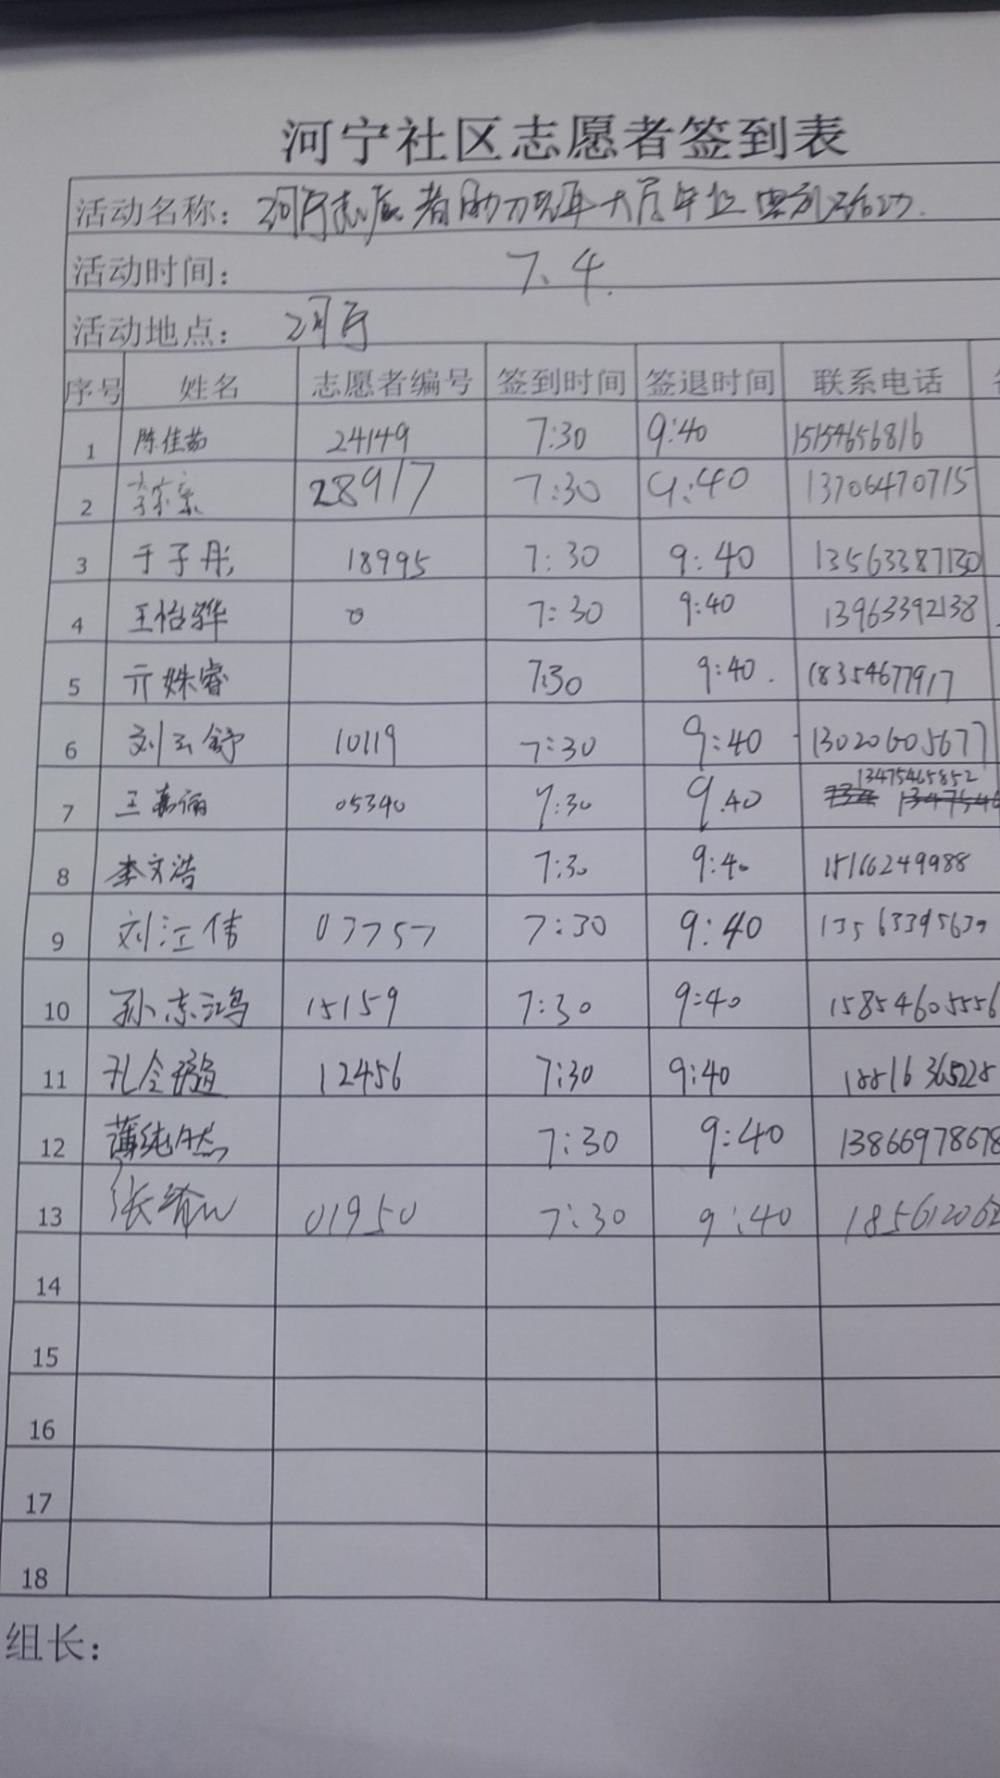 河宁社区志愿者签到表
活动名称：河宁志愿者助力现年大屋年业 活动.
活动时间： 7.4.
活动地点： 河宁
序号 姓名 志愿者编号 签到时间 签退时间 联系电话
1 陈佳茹 24149 7:30 9:40 15154656816
2 28917 7:30 9:40 13706470715
3 于子彤 18995 7:30 9:40 13563387130
4 王怡骅 0 7:30 9:40 13963392138
5 亓姝睿 7:30 9:40. 18354677917
6 刘云舒 10119 7:30 9:40 13020605677
7 王嘉俪 05340 7:30 9.40 13475465852
8 李文浩 7:30 9:40 15166249988
9 刘江伟 03757 7:30 9:40 13563395639
10 孙东鸿 15159 7:30 9:40 15854605556
11 孔令 12456 7:30 9:40 18816365228
12 薄纯然 7:30 9:40 13866978678
13 张 01950 7:30 9:40 185612062
14
15
16
17
18
组长：